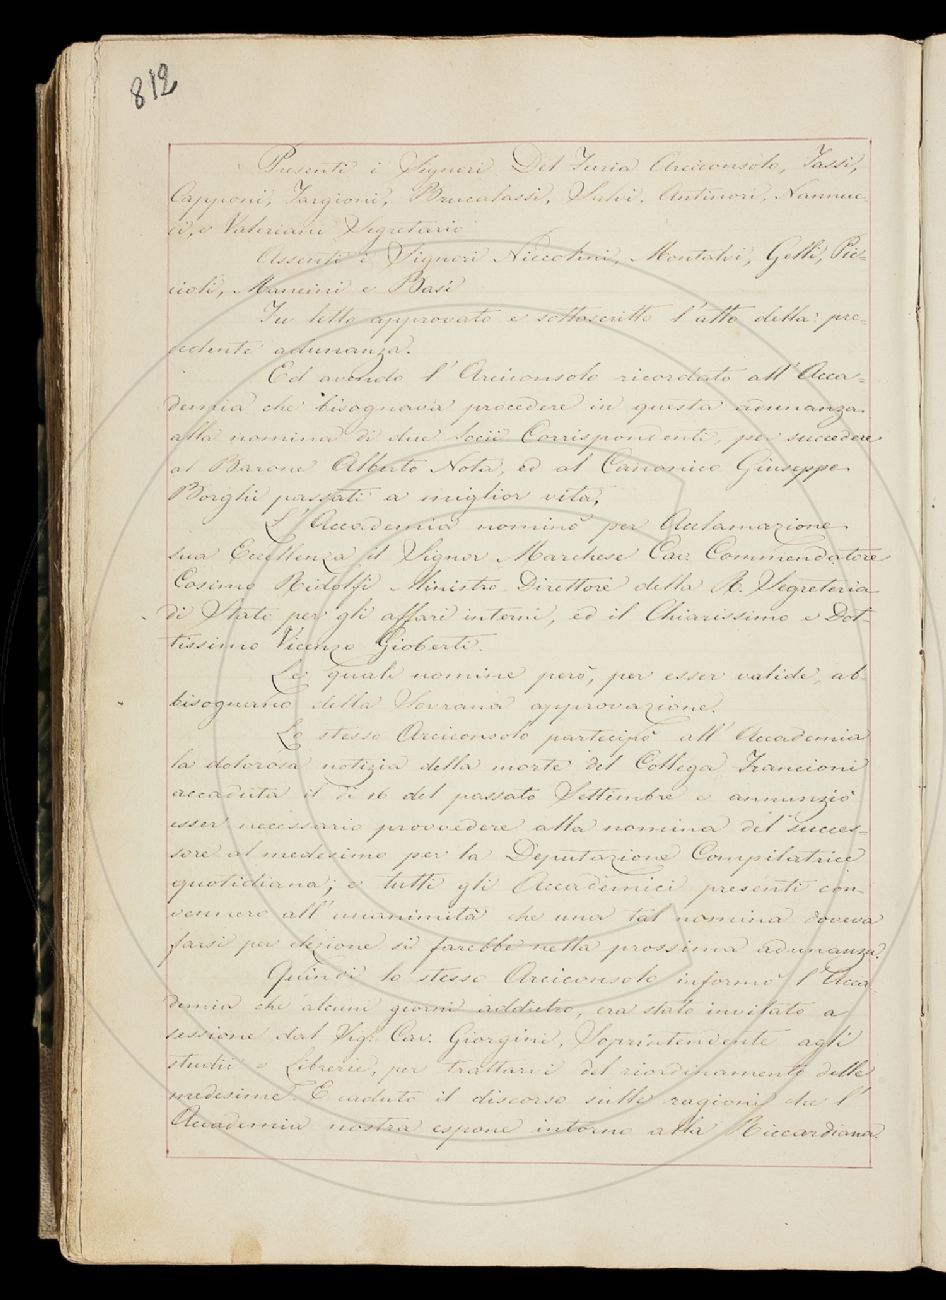 812
Presenti i Signori Del Furia Arciconsolo, Tassi,
Capponi, Targioni, Brucalassi, Salvi, Antinori, Nannuc=
ci, e Valeriani Segretario
Assenti i Signori Niccolini, Montalvi, Gelli, Pic=
cioli, Mancini e Basi
Fu letto approvato e sottoscritto l'atto della pre=
cedente adunanza.
Ed avendo l'Arciconsolo ricordato all'Acca=
demia che bisognava procedere in questa adunanza
alla nomina di due Socii Corrispondenti, per succedere
al Barone Alberto Nota, ed al Canonico Giuseppe
Borghi passati a miglior vita;
L'Accademia nominò per Acclamazione
sua Eccellenza il Signor Marchese Cav. Commendatore
Cosimo Ridolfi Ministro Direttore della R. Segreteria
di Stato per gli affari interni, ed il Chiarissimo e Dot=
tissimo Vicenzo Gioberti.
Le quali nomine però, per esser valide, ab=
bisognano della Sovrana approvazione.
Lo stesso Arciconsolo partecipò all'Accademia
la dolorosa notizia della morte del Collega Francioni
accaduta il dì 16 del passato Settembre e annunziò
esser necessario provvedere alla nomina del succes=
sore al medesimo per la Deputazione Compilatrice
quotidiana; e tutti gli Accademici presenti con
vennero all'unanimità che una tal nomina doveva
farsi per elezione si farebbe nella prossima adunanza.
Quindi lo stesso Arciconsolo informò l'Acca
demia che alcuni giorni addietro, era stato invitato a
sessione dal Sig. Cav. Giorgini, Soprintendente agli
studii e Librerie, per trattarvi del riordinamento delle
medesime. E caduto il discorso sulle ragioni che l'
Accademia nostra espone intorno alla Riccardiana